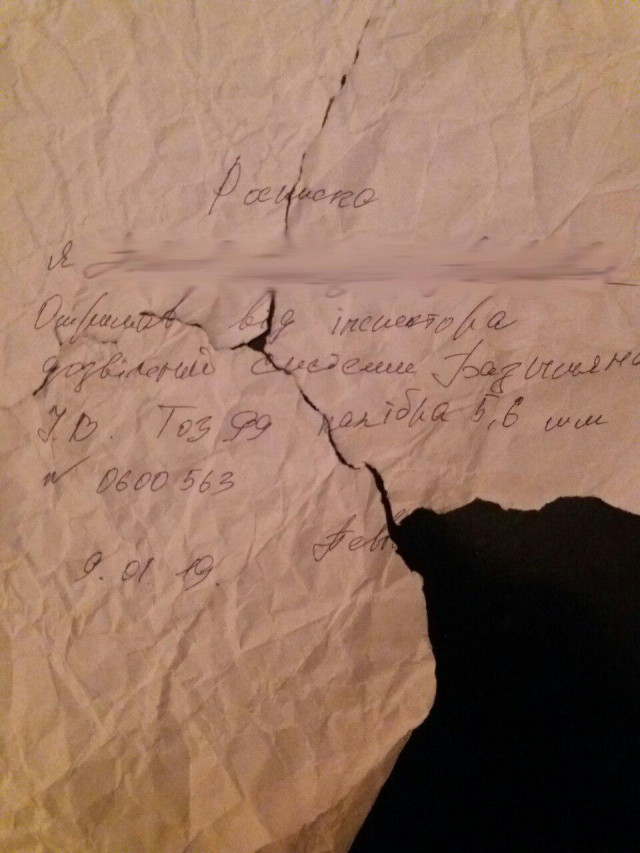 Розписка
Я
Отримав від інспектора
дозвільної системи
І.В. Тоз 99 калібра 5,6 мм
№ 0600563
9. 01. 19.